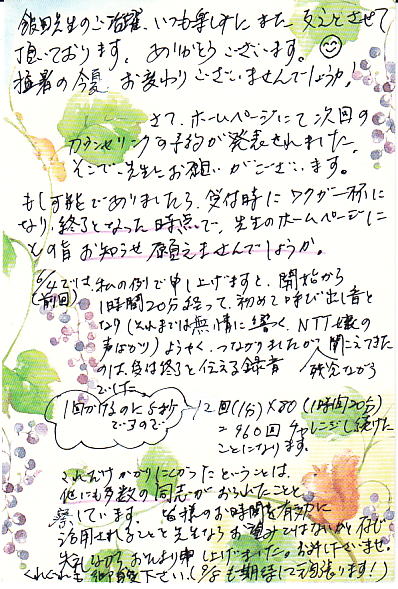 飯田先生のご活躍、いつも楽しみに また 支えとさせて
頂いております。ありがとうございます。
猛暑の今夏 お変わりございませんでしょうか!
さて、ホームページにて次回の
カウンセリングの予約が発表されました。
そこで、先生にお願いがございます。
もし可能でありましたら、受付時にワクが一杯に
なり、終了となった時点で、先生のホームページに
その旨お知らせ願えませんでしょうか。
6/4では、私の例で申し上げますと、開始から
(前回)
1時間20分経って、初めて呼び出し音と
なり(それまでは無情に響く、NTT嬢の
声ばかり)ようやく、つながりましたが 聞こえてきた
のは、受付終了と伝える録音 残念ながら
でした
1回かけるのに5秒
できるので
12回(1分)×80(1時間20分)
=960回チャレンジし続けた
ことになります。
これだけかかりにくかったということは、
他にも多数の同志がおられたことと
察しています。皆様のお時間を有効に
活用されることを先生もお望みではないかと
失礼ながら 申し上げました。お許し下さいませ。
くれぐれも御自愛下さい。(9/5も期待して頑張ります!)